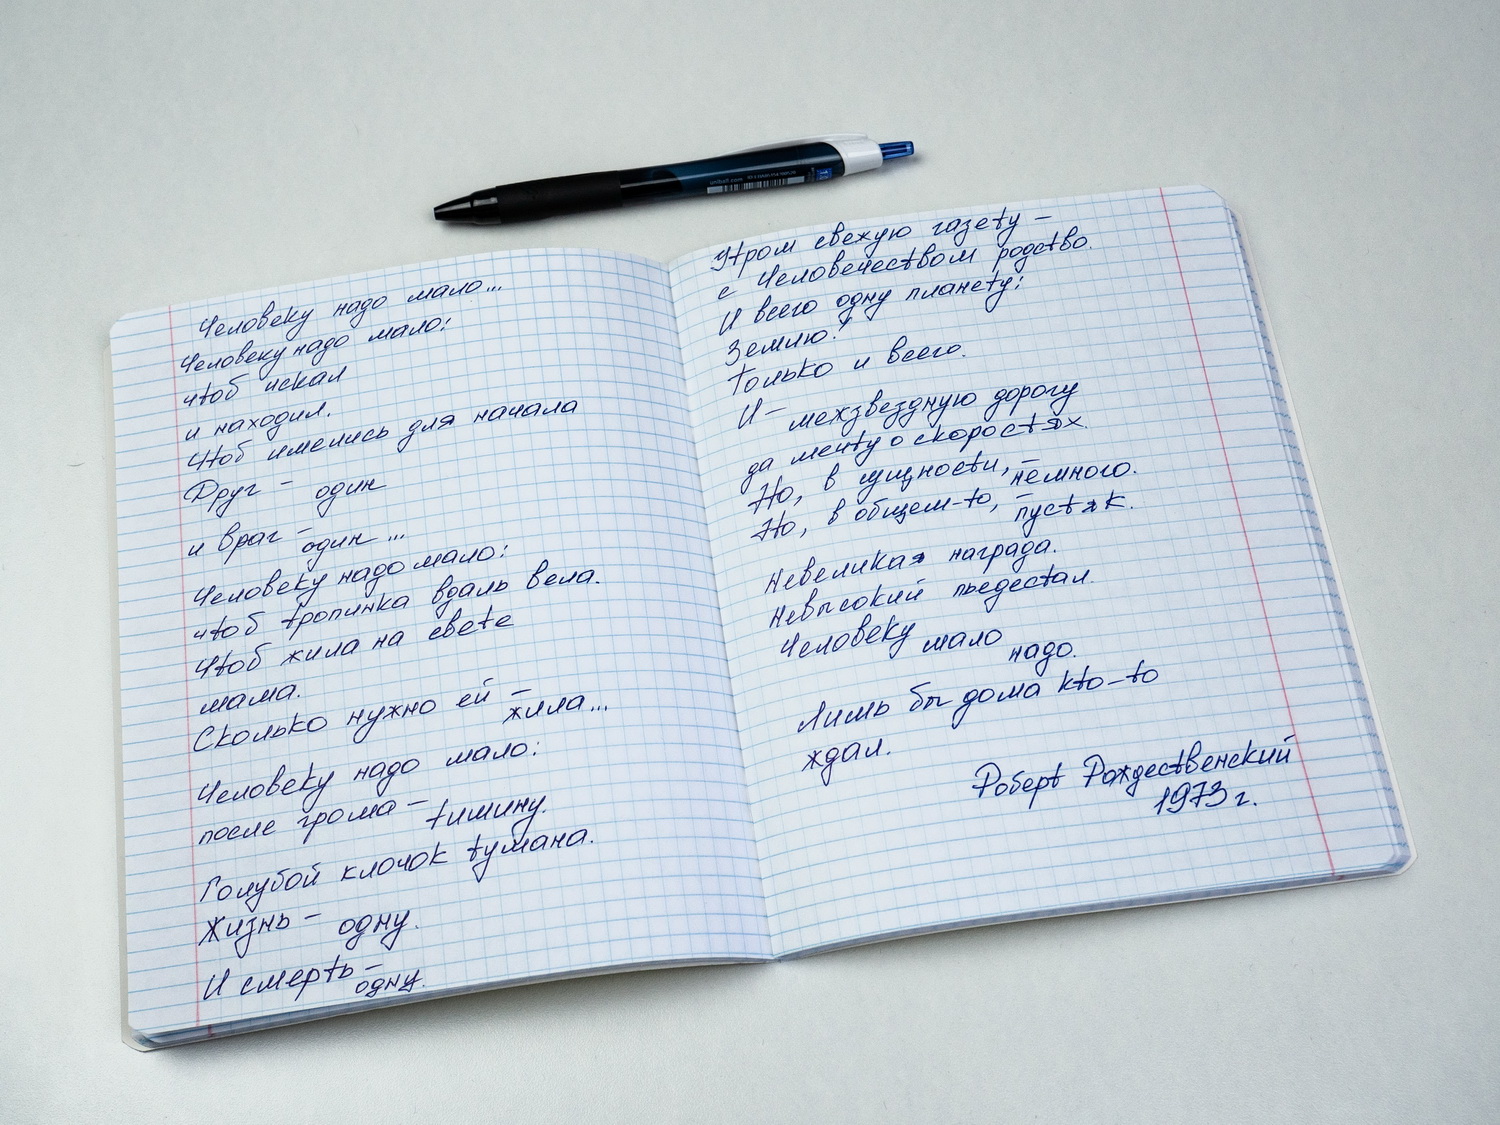 Человеку надо мало...
Человеку надо мало:
чтоб искал
и находил.
Чтоб имелись для начала
Друг – один
и враг – один...
Человеку надо мало:
чтоб тропинка вдаль вела.
Чтоб жила на свете
мама.
Сколько нужно ей –
жила...
Человеку надо мало:
после грома – тишину.
Голубой клочок тумана.
Жизнь – одну.
И смерть – одну.
Утром свежую газету –
с Человечеством родство.
И всего одну планету:
Землю!
Только и всего.
И – межзвездную дорогу
да мечту о скоростях.
Но, в сущности, – немного.
Но, в общем-то, – пустяк.
Невеликая награда.
Невысокий пьедестал.
Человеку мало
надо.
Лишь бы дома кто-то
ждал.
Роберт Рождественский
1973 г.